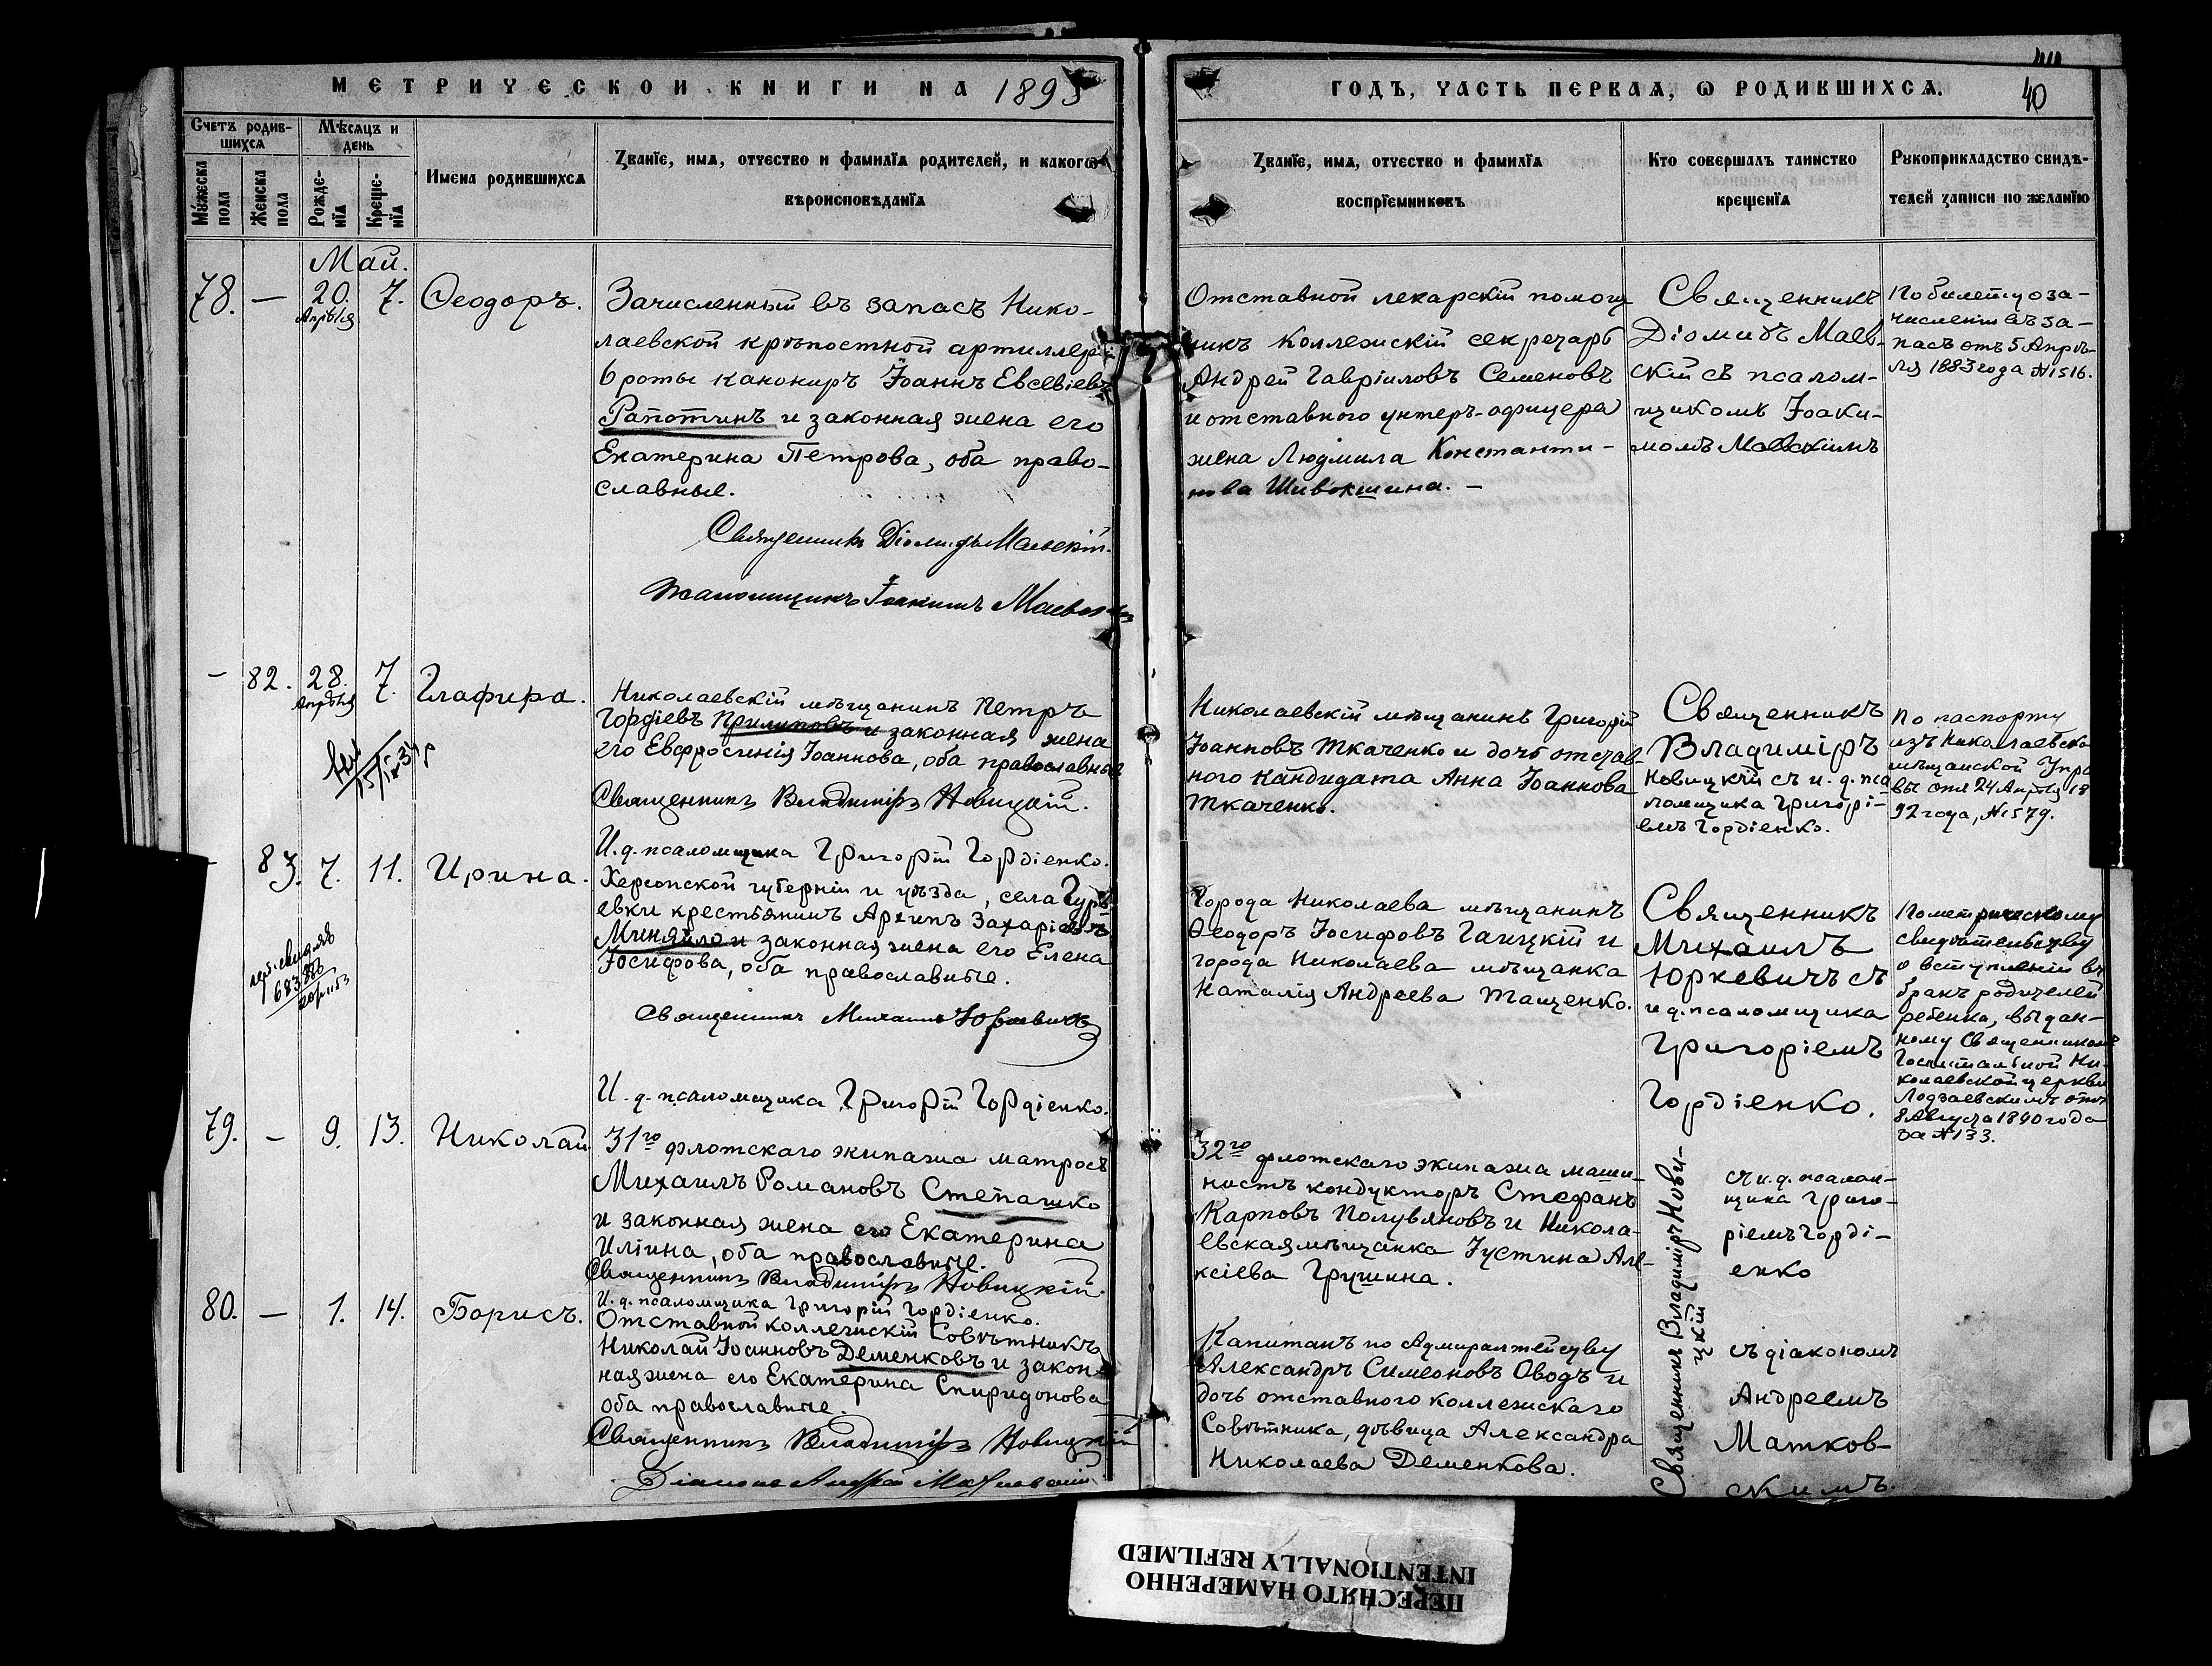 МЕТРИЧЕСКОЙ КНИГИ НА 1893
ГОДЪ, ЧАСТЬ ПЕРВАЯ, Ѡ РОДИВШИХСЯ.
40
Счетъ родив-
шихся
Мужеска пола
Женска пола
Мѣсяцъ и
день
Рожде-
нїя
Креще-
нїя
Имена родившихся
Званїе, имя, отчество и фамилїя родителей, и какогѡ
вѣроисповѣданїя
Званїе, имя, отчество и фамилїя
воспрїемниковъ
Кто совершалъ таинство
крещенїя
Рукоприкладство свидѣ-
телей записи по желанїю
Май.
78. — 20. Апрѣля 7. Ѳеодоръ.
Зачисленный въ запасъ Нико-
лаевской крѣпостной артиллер
6 роты канониръ Іоаннъ Евсевіевъ
Рапотинъ и законная жена его
Екатерина Петрова, оба право-
славные.
Священникъ Діомидъ Маевскій.
Псаломщикъ Іоакимъ Маевскій
Отставной лекарскій помощ
никъ коллежскій секретарь
Андрей Гавріиловъ Семеновъ
и отставного унтеръ-офицера
жена Людмила Константи-
нова Шивокшина. —
Священникъ
Діомидъ Маев-
скій съ псалом-
щикомъ Іоаки-
момъ Маевскимъ
По билету о за-
численіи въ за-
пасъ отъ 5 Апрѣ-
ля 1883 года №1516.
— 82. 28. Апрѣля 7. Глафира.
Николаевскій мѣщанинъ Петръ
Гордіевъ Прилиповъ и законная жена
его Евфросинія Іоаннова, оба православные
Священникъ Владиміръ Новицкій.
И. д. псаломщика Григорій Гордіенко.
Николаевскій мѣщанинъ Григорій
Іоанновъ Ткаченко и дочь отстав-
ного кандидата Анна Іоаннова
Ткаченко.
Священникъ
Владиміръ
Новицкій съ и. д. пса
ломщика Григорі-
емъ Гордіенко.
По паспорту
изъ Николаевско
мѣщанской Упра
вы отъ 24 Апрѣля 18
92 года, №1579.
- 83. 7. 11. Ирина.
Херсонской губерніи и уѣзда, села Гурь
евки крестьянинъ Архипъ Захаріевъ
Миняйло и законная жена его Елена
Іосифова, оба православные.
Священникъ Михаилъ Юркевичъ
И. д. псаломщика Григорій Гордіенко.
Города Николаева мѣщанинъ
Ѳеодоръ Іосифовъ Гаицкій и
города Николаева мѣщанка
Наталія Андреева Тащенко.
Священникъ
Михаилъ
Юркевичъ съ
и д. псаломщика
Григоріемъ
Гордіенко.
По метрическому
свидѣтельству
о вступленіи въ
бракъ родителей
ребенка, выдан-
ному Священникомъ
Госпитальной Ни-
колаевской церкви
Лодзаевскимъ отъ
8 Августа 1890 года
за №133.
79. — 9. 13. Николай
31го флотскаго экипажа матросъ
Михаилъ Романовъ Степашко
и законная жена его Екатерина
Иліина, оба православные.
Священникъ Владиміръ Новицкій.
И. д. псаломщика Григорій Гордіенко.
32го флотскаго экипажа маши-
нистъ кондукторъ Стефанъ
Карповъ Полувяновъ и Никола-
евская мѣщанка Іустина Але-
ксіева Грушина.
Священникъ Владиміръ Нови-
цкій
съ и. д. псалом-
щика Григо-
ріемъ Горді-
енко
80. — 1. 14. Борисъ.
Отставной коллежскій Совѣтникъ
Николай Іоанновъ Деменковъ и закон
ная жена его Екатерина Спиридонова
оба православные.
Священникъ Владиміръ Новицкій
Діаконъ Андрей Матковскій
Капитанъ по Адмиралтейству
Александръ Симеоновъ Оводъ и
дочь отставного коллежскаго
Совѣтника, дѣвица Александра
Николаева Деменкова.
съ діакономъ
Андреемъ
Матков-
скимъ.
ПЕРЕСНЯТО НАМЕРЕННО
INTENTIONALLY REFILMED